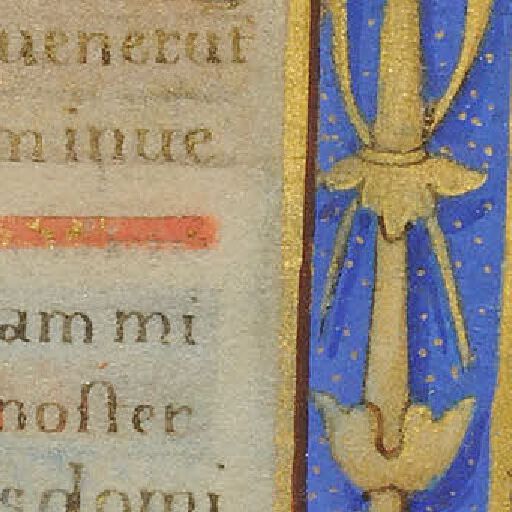 uenerūt
minue
am mi
noſter
s domi